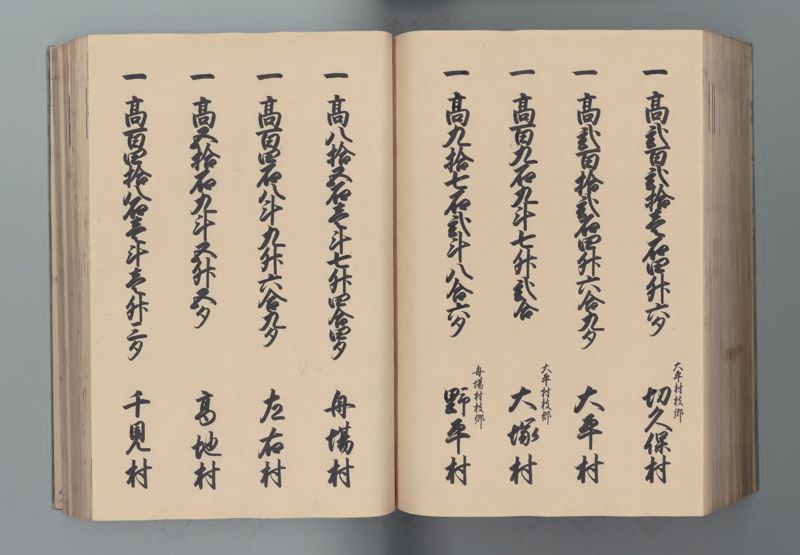 一 高弐百弐拾壱石四升六夕
大平村枝郷
切久保村
一 高弐百拾弐石四升六合九夕
大平村
一 高百九石九斗七升弐合
大平村枝郷
大塚村
一 高九拾七石弐斗八合六夕
舟場村枝郷
野平村
一 高八拾五石壱斗七升四合四夕
舟場村
一 高百四石八斗九升六合九夕
左右村
一 高五拾石九斗五升五夕
高地村
一 高百四拾八石壱斗壱升二夕
千見村